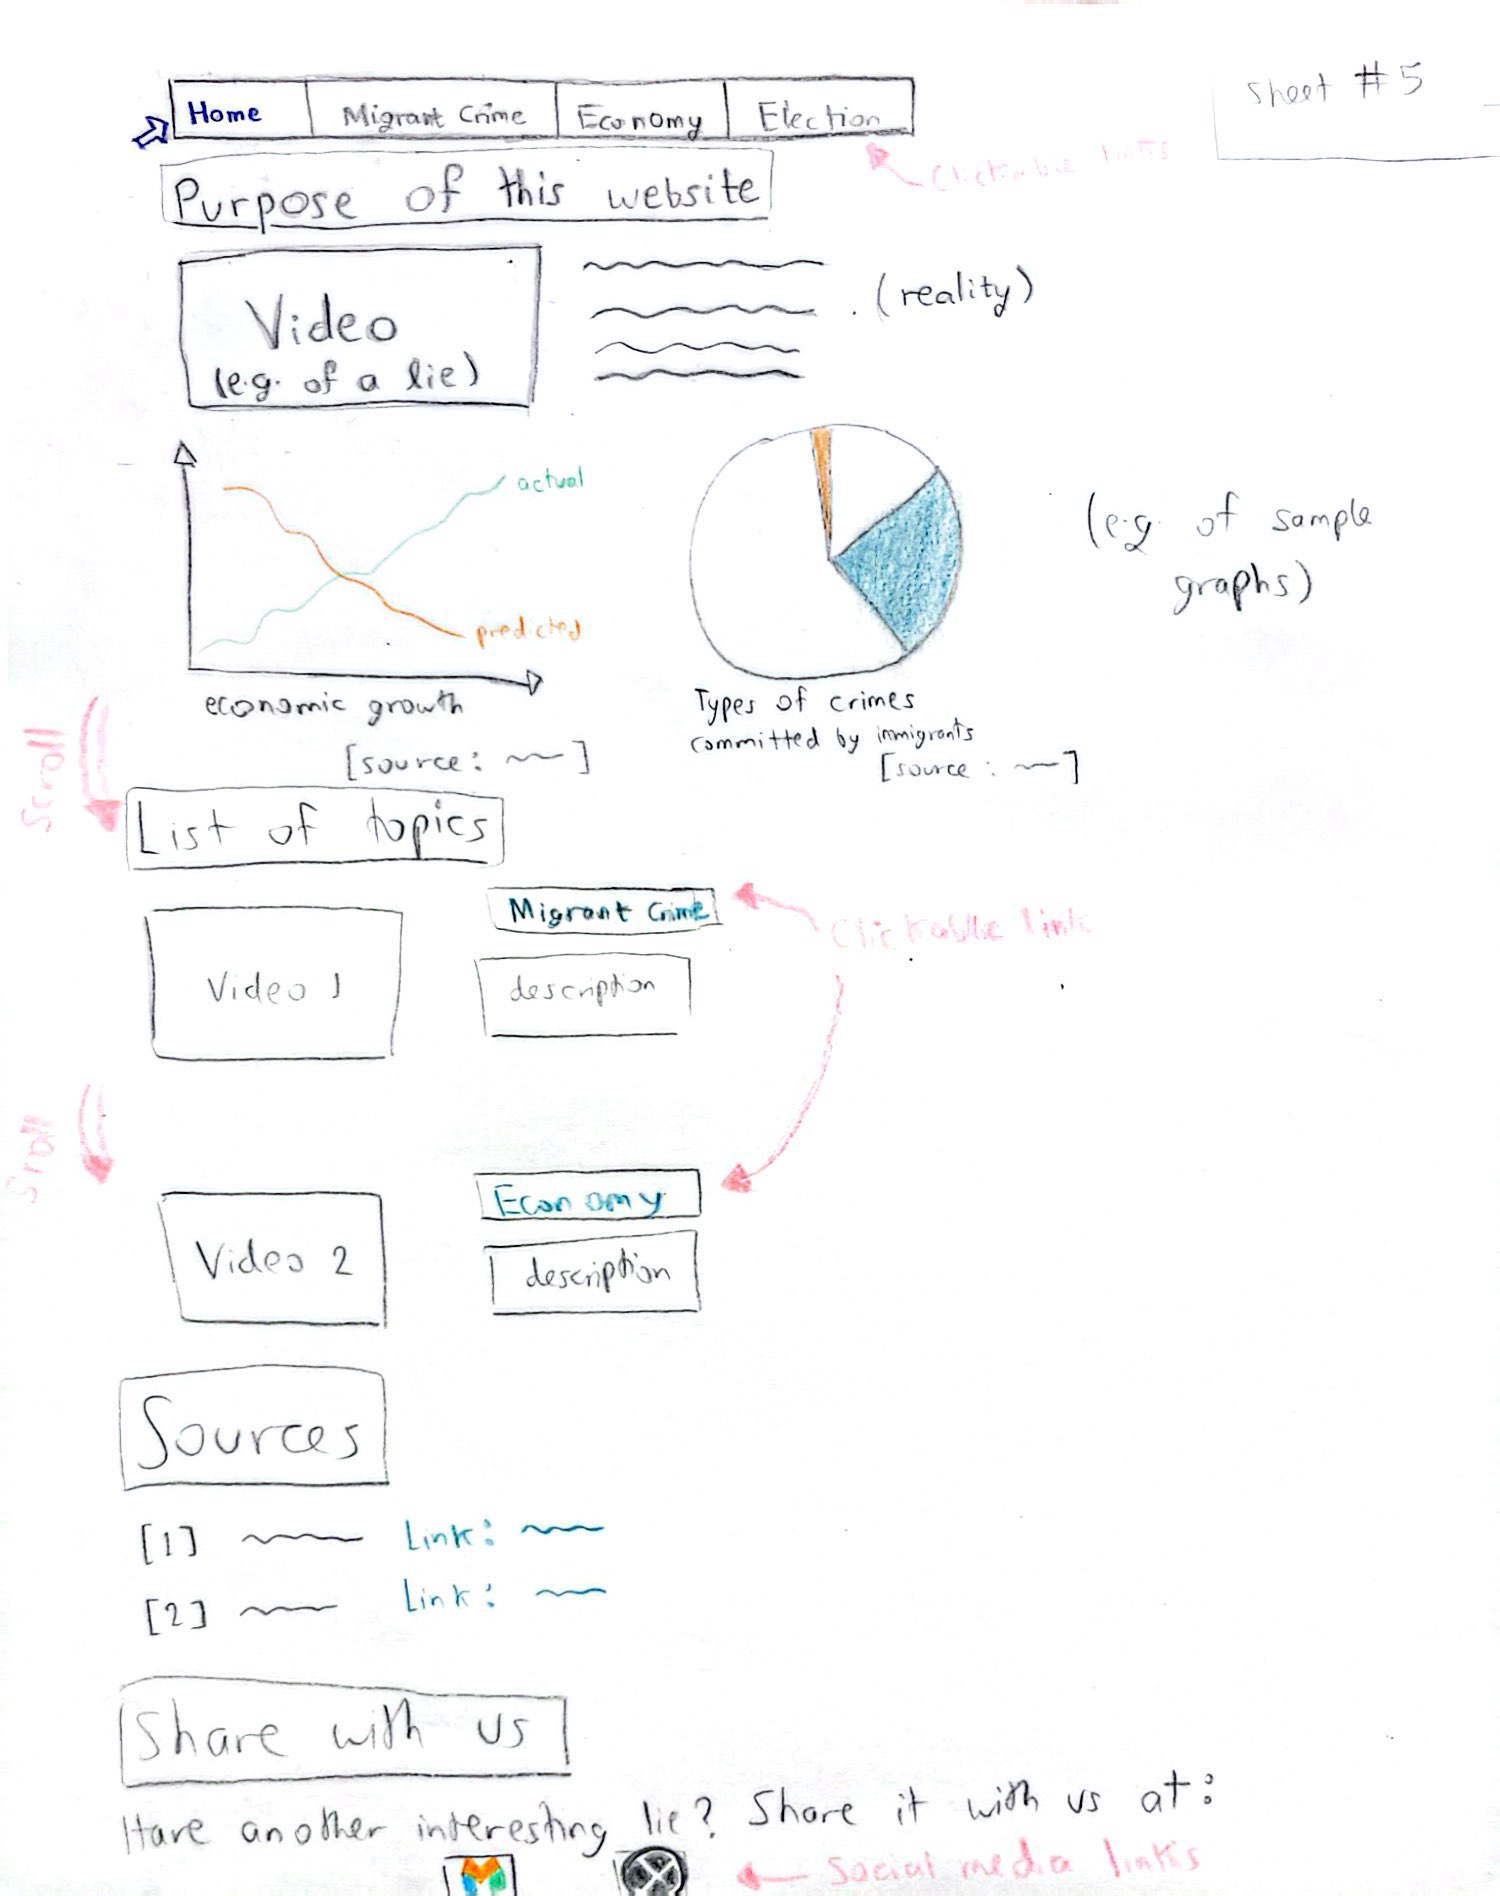 Sheet #5
Home Migrant Crime Economy Election
Clickable links
Purpose of this website
Video
(e.g. of a lie)
(reality)
actual
predicted
economic growth
[source: ]
Types of crimes
committed by immigrants
[source : ]
(e.g. of sample
graphs)
Scroll
List of topics
Video 1
Migrant Crime
description
Clickable link
Sroll
Video 2
Economy
description
Sources
[1] Link:
[2] Link:
Share with us
Have another interesting lie? Share it with us at:
Social media links